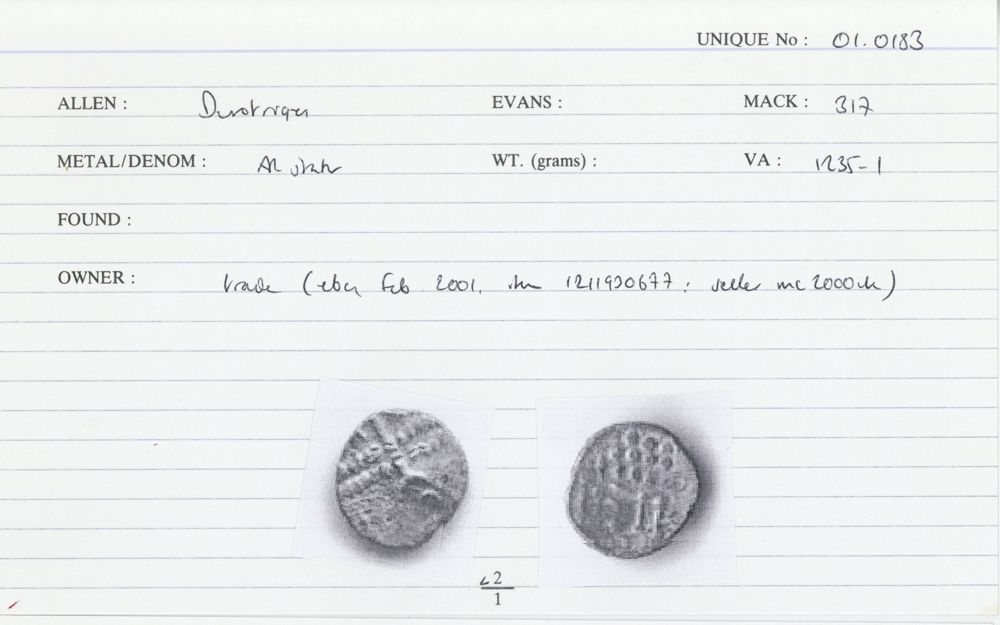 UNIQUE No : 01.0183
ALLEN : Durotriges EVANS : MACK : 317
METAL/DENOM : AR stater WT. (grams) : VA : 1235-1
FOUND :
OWNER : trade (ebay Feb 2001. item 1211990677 : seller mc2000uk)
c2
1